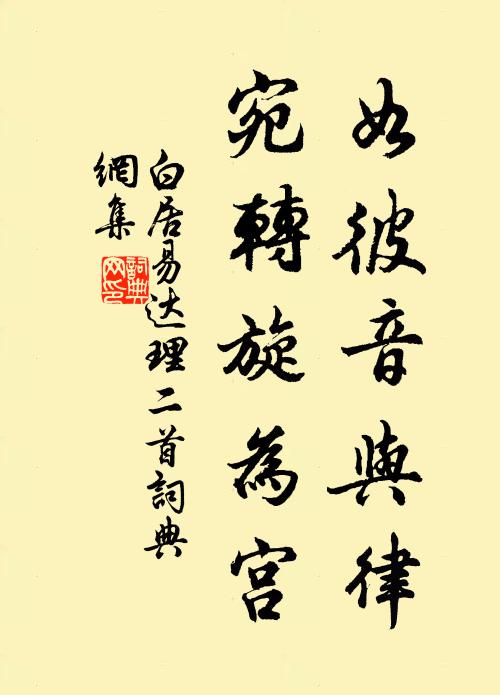 如彼音與律
宛轉旋為宮
白居易达理二首詞典
網集
詞典
网印